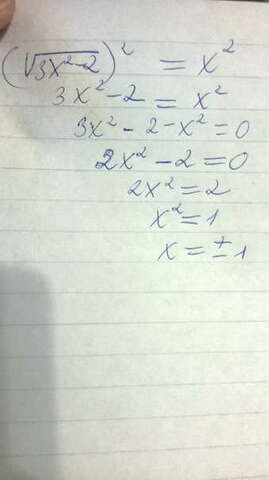 (√3x²-2)² = x²
3x² - 2 = x²
3x² - 2 - x² = 0
2x² - 2 = 0
2x² = 2
x² = 1
x = ±1